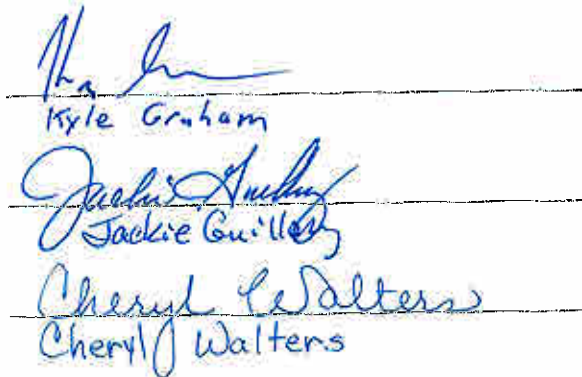 Kyle Graham
Jackie Guillory
Jackie Guillory
Cheryl Walters
Cheryl Walters